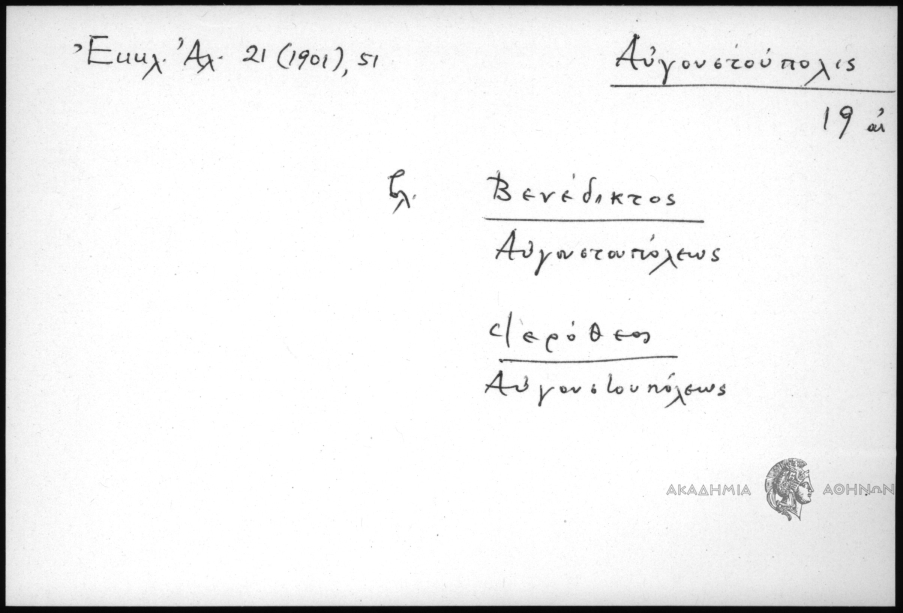 Ἐκκλ. Ἀλ. 21 (1901), 51
Αὐγουστούπολις
19 αἰ
βλ. Βενέδικτος
Αὐγουστουπόλεως
Ἱερόθεος
Αὐγουστουπόλεως
ΑΚΑΔΗΜΙΑ ΑΘΗΝΩΝ